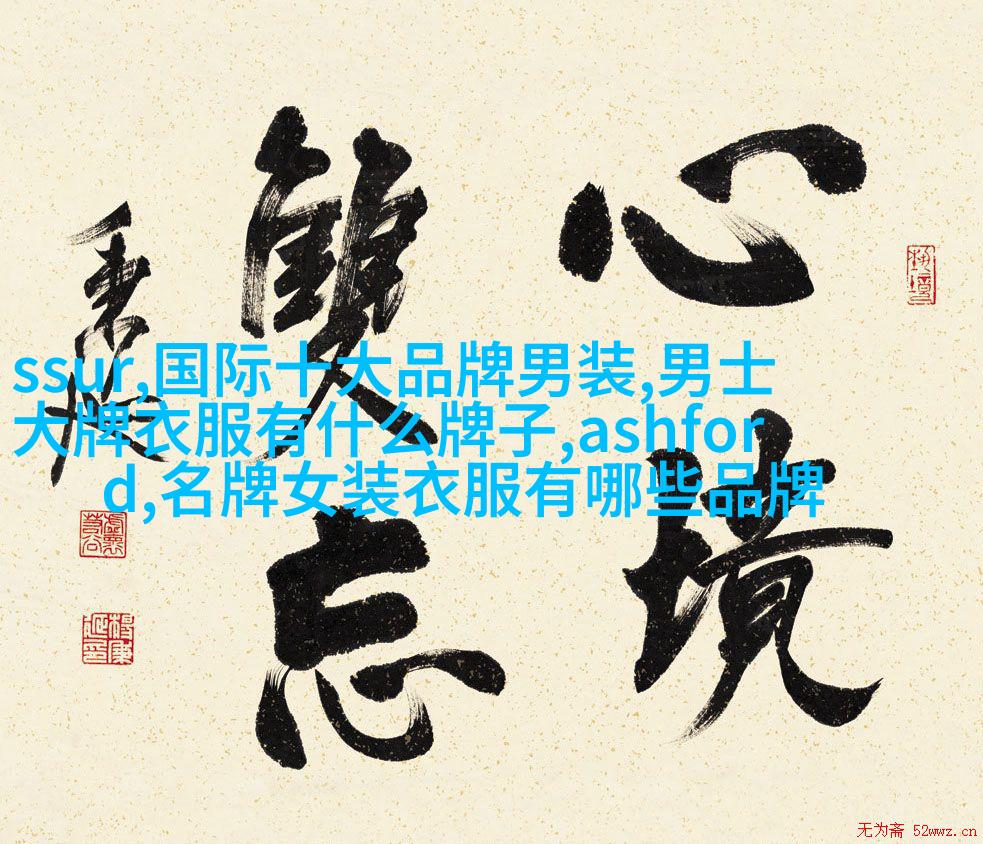 心境
雙忘
ssur,国际十大品牌男装,男士
大牌衣服有什么牌子,ashfor
d,名牌女装衣服有哪些品牌
无为斋 52wwz.cn